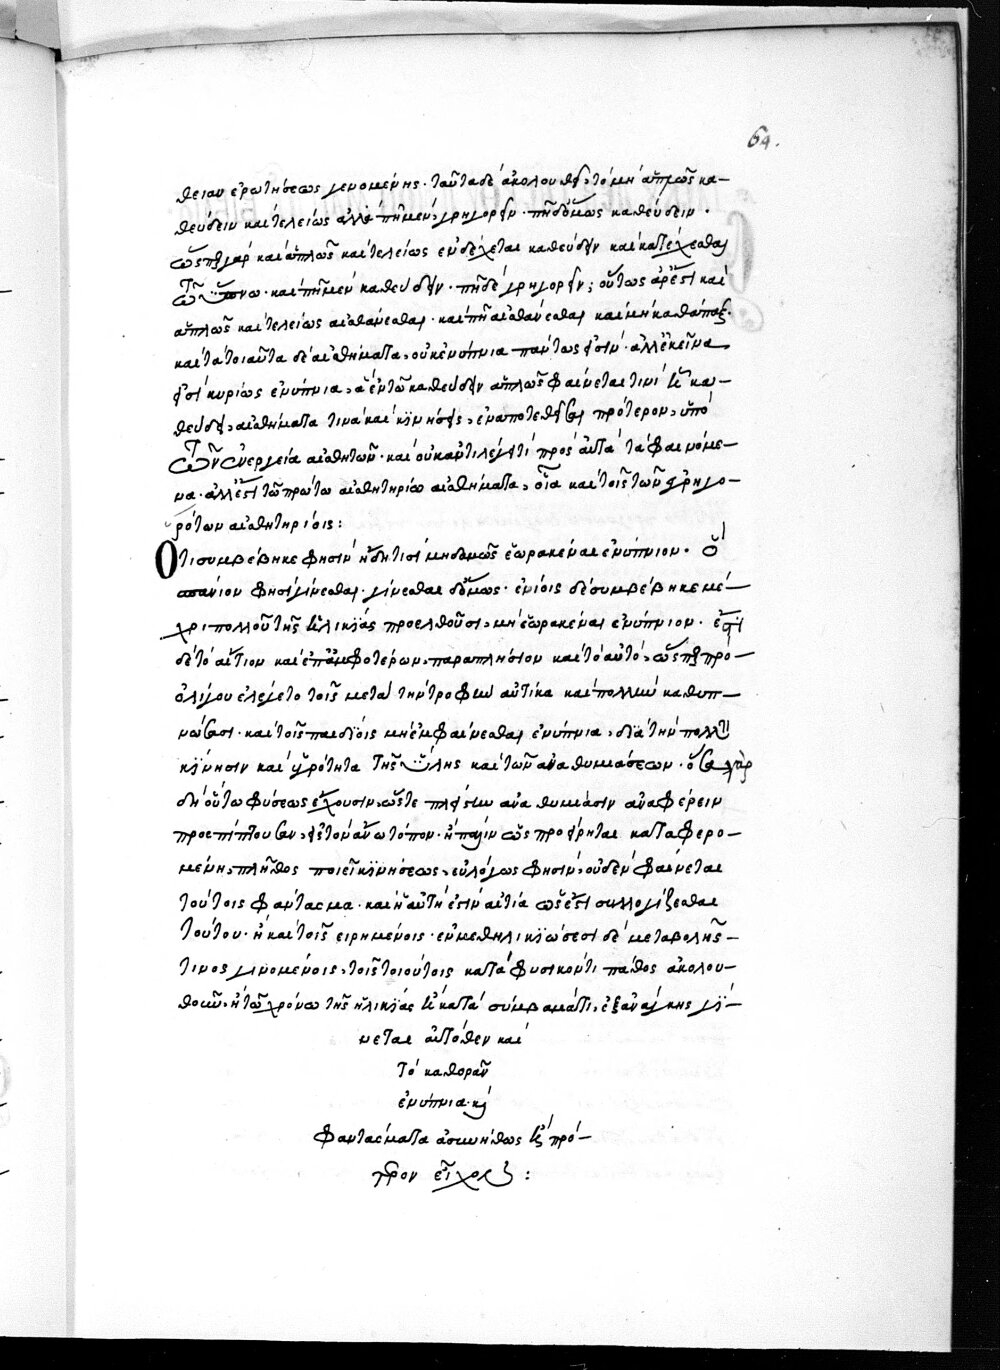 64.
πειαν ἐρωτήσεως γενομένης· ταῦτα δὲ ἀκολουθεῖ, τὸ μὴ ἁπλῶς κα-
θεύδειν καὶ τελείως ἀλλὰ πῆ μὲν γρηγορεῖν· πῆ δ' ὅμως καθεύδειν·
ὥσπερ γὰρ καὶ ἁπλῶς καὶ τελείως ἐνδέχεται καθεύδειν καὶ κατέχεσθαι
τῷ ὕπνῳ· καὶ πῆ μὲν καθεύδειν· πῆ δὲ γρηγορεῖν; οὕτως ἄρ' ἔστι καὶ
ἁπλῶς καὶ τελείως αἰσθάνεσθαι· καὶ πῆ αἰσθάνεσθαι καὶ μὴ καθάπαξ·
καὶ τὰ τοιαῦτα δὲ αἰσθήματα, οὐκ ἐνύπνια πάντως εἰσίν· ἀλλ' ἐκεῖνα
εἰσὶ κυρίως ἐνύπνια, ἃ ἐν τῷ καθεύδειν ἁπλῶς φαίνεται τινὶ καὶ κα-
θεύδει, αἰσθήματα τινὰ καὶ κινήσεις, ἐναποτεθεῖσαι πρότερον, ὑπὸ
τῶν ἐνεργείᾳ αἰσθητῶν· καὶ οὐκ ἀντιλέγει τί πρὸς αὐτὰ τὰ φαινόμε-
να· ἀλλ' ἐστὶ τῷ πρώτῳ αἰσθητηρίῳ αἰσθήματα, οἷα καὶ τοῖς τῶν γρηγο-
ρότων αἰσθητηρίοις:
Ὅτι συμβέβηκε φησὶν ἤδη τισὶ μηδαμῶς ἑωρακέναι ἐνύπνιον· ὃ
σπάνιον φησὶ γίνεσθαι· γίνεσθαι δ' ὅμως· ἐνίοις δὲ συμβέβηκε μέ-
χρι πολλοῦ τῆς ἡλικίας προελθοῦσι, μὴ ἑωρακέναι ἐνύπνιον· ἔστι
δὲ τὸ αἴτιον καὶ ἐπ' ἀμφοτέρων, παραπλήσιον καὶ τὸ αὐτὸ, ὥσπερ πρὸ
ὀλίγου ἐλέγετο τοῖς μετὰ τὴν τροφὴν αὐτίκα καὶ πολλὴν καθυπ-
νώσασι· καὶ τοῖς παιδίοις μὴ ἐμφαίνεσθαι ἐνύπνια, διὰ τὴν πολλὴν
κίνησιν καὶ ὑγρότητα τῆς ὕλης καὶ τῶν ἀναθυμιάσεων· ὅσα γὰρ
δὴ οὕτω φύσεως ἔχουσιν, ὥστε πλείστην ἀναθυμίασιν ἀναφέρειν
προσπίπτουσαν, εἰς τὸν ἄνω τόπον· ἣ πάλιν ὡς προείρηται καταφερο-
μένη, πλῆθος ποιεῖ κινήσεως, εὐλόγως φησὶν, οὐδὲν φαίνεται
τούτοις φάντασμα· καὶ αὕτη ἐστὶν αἰτία ὡς ἔστι συλλογίζεσθαι
τούτου· ἣ καὶ τοῖς εἰρημένοις· ἐν μεθηλικιώσεσι δὲ μεταβολῆς
τινος γινομένοις, τοῖς τοιούτοις κατὰ φυσικόν τι πάθος ἀκολου-
θοῦν, ἢ τῷ χρόνῳ τῆς ἡλικίας ἢ κατὰ σύμβαμά τι, ἐξ ἀνάγκης γί-
νεται αὐτόθεν καὶ
τὸ καθορᾶν
ἐνύπνια· καὶ
φαντάσματα ἀσυνήθως ἢ πρό-
τερον εἶχον: